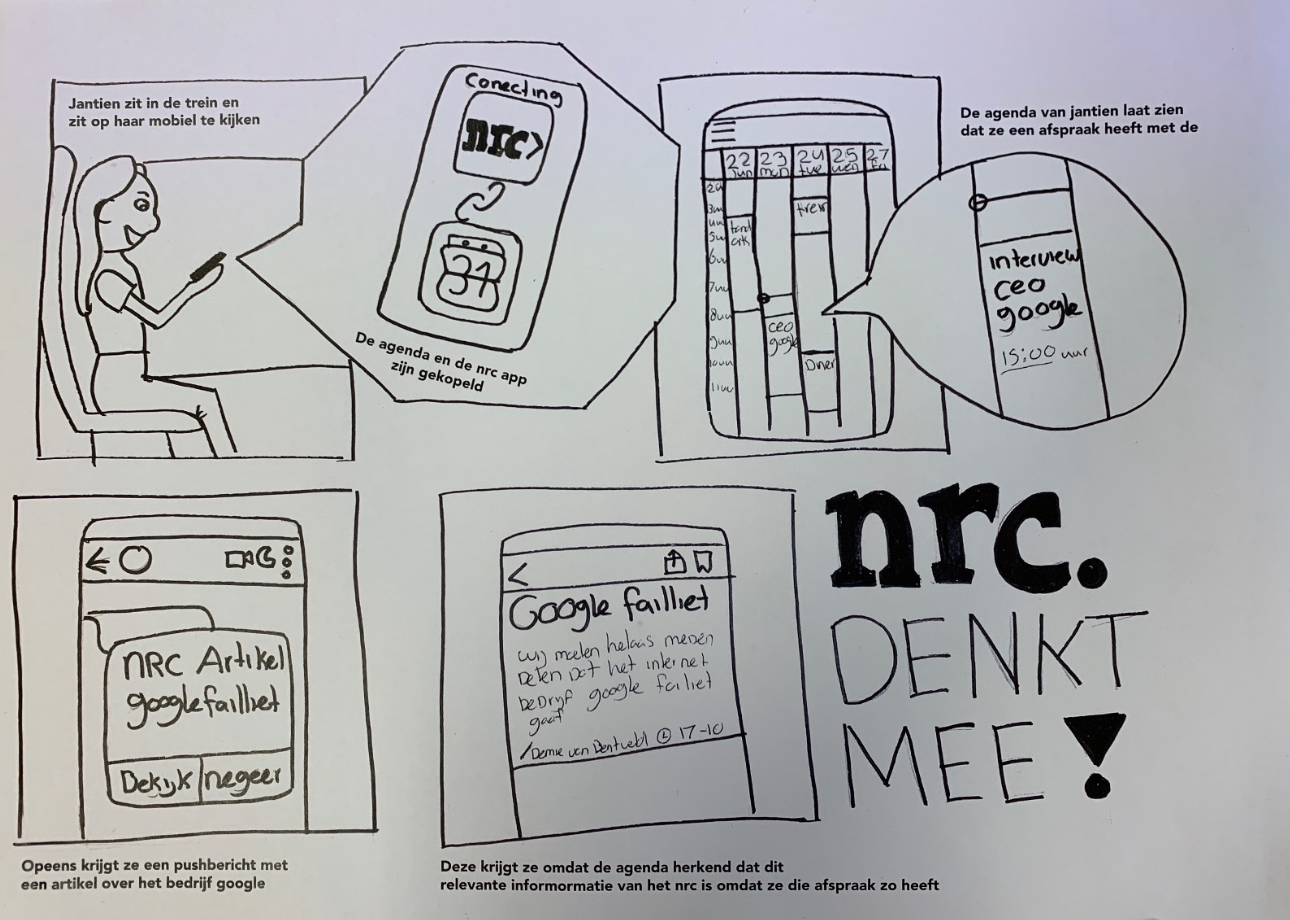 Jantien zit in de trein en
zit op haar mobiel te kijken
Conecting
nrc>
31
De agenda en de nrc app
zijn gekopeld
22 23 24 25 27
Jun mon tue wen
3uu
trein
5uu
6uu
7uu
8uu
ceo
google
9uu
Diner
10uu
11uu
De agenda van jantien laat zien
dat ze een afspraak heeft met de
interview
ceo
google
15:00 uur
NRC Artikel
google failliet
Bekijk negeer
Opeens krijgt ze een pushbericht met
een artikel over het bedrijf google
Google failliet
wij moeten helaas meden
Delen Dat het internet
beDrijf google failiet
gaat
17-10
Deze krijgt ze omdat de agenda herkend dat dit
relevante informormatie van het nrc is omdat ze die afspraak zo heeft
nrc.
DENKT
MEE!